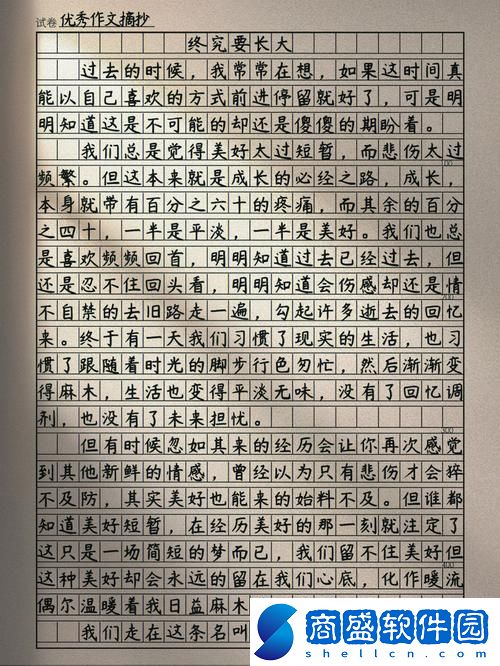 试卷 优秀作文摘抄
终究要长大
过去的时候，我常常在想，如果这时间真
能以自己喜欢的方式前进停留就好了，可是明
明知道这是不可能的却还是傻傻的期盼着。
我们总是觉得美好太过短暂，而悲伤太过
频繁。但这本来就是成长的必经之路，成长，
本身就带有百分之六十的疼痛，而其余的百分
之四十，一半是平淡，一半是美好。我们也总
是喜欢频频回首，明明知道过去已经过去，但
还是忍不住回头看，明明知道会伤感却还是情
不自禁的去旧路走一遍，勾起许多逝去的回忆
来。终于有一天我们习惯了现实的生活，也习
惯了跟随着时光的脚步行色匆忙，然后渐渐变
得麻木，生活也变得平淡无味，没有了回忆调
剂，也没有了未来担忧。
但有时候忽如其来的经历会让你再次感觉
到其他新鲜的情感，曾经以为只有悲伤才会猝
不及防，其实美好也能来的始料不及。但谁都
知道美好短暂，在经历美好的那一刻就注定了
这只是一场简短的梦而已，我们留不住美好但
这种美好却会永远的留在我们心底，化作暖流
偶尔温暖着我日益麻木
我们走在这条名叫
200
300
400
商盛软件园
shellcn.com